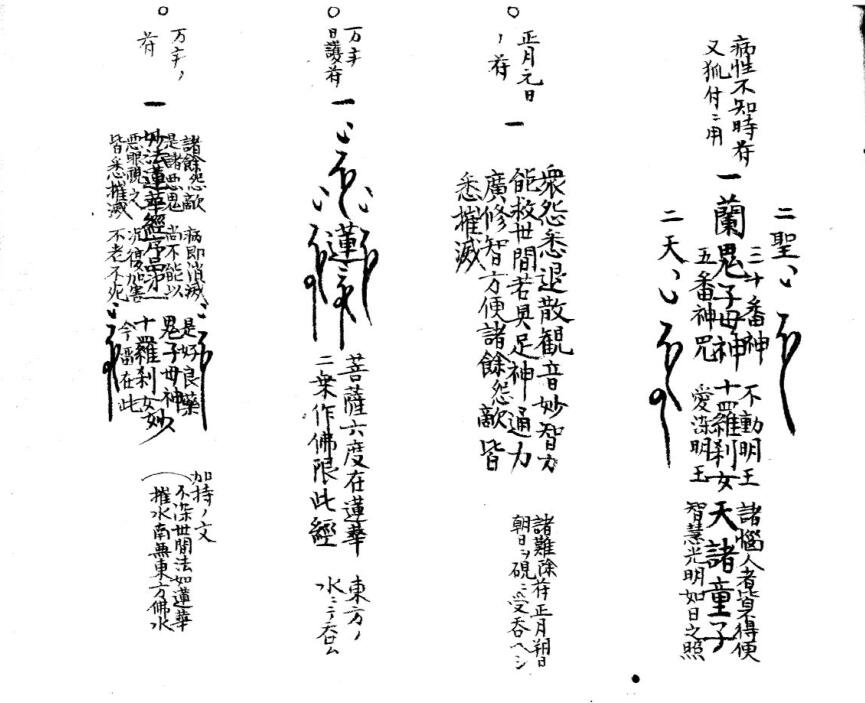 病性不知時符
又狐付ニ用
一
二聖
三十番神 不動明王 諸惱人者皆不得便
蘭鬼子母神 十羅刹女 天諸童子
五番神咒 愛染明王 智慧光明如日之照
二天
正月元日
ノ符
一
衆怨悉退散観音妙智力
能救世間若具足神通力
廣修智方便諸餘怨敵皆
悉摧滅
諸難除符正月朔日
朝日ヲ硯ニ受呑ヘシ
万年
日護符
一
蓮
菩薩六度在蓮華
二乗作佛限此經
東方ノ
水ニテ呑ム
万年ノ
符
一
諸餘怨敵 病即消滅 是好良薬
是諸悪鬼 尚不能以 鬼子母神
妙法蓮華經序品第一
十羅刹女
悪眼視之 況復加害
皆悉摧滅 不老不死 今留在此
加持ノ文
不染世間法如蓮華
摧水南無東方佛水